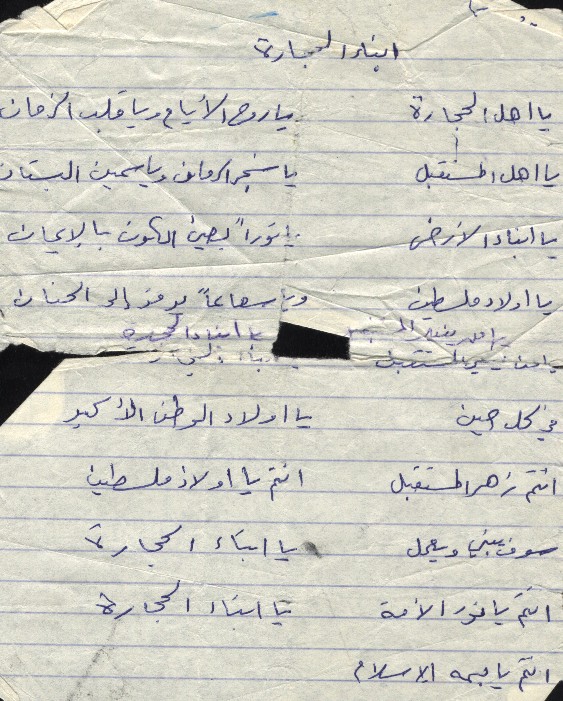 ابناء الحجارة
يا اهل الحجارة يا روح الأيام ويا قلب الزمان
يا اهل المستقبل يا شجر الرمان وياسمين البستان
يا ابناء الأرض يا نوراً يضيئ الكون بالإيمان
يا اولاد فلسطين ويا شعاعاً يرمز إلى الحنان
يا ابناء الحجارة
المستقبل
في كل حين يا اولاد الوطن الأكبر
انتم زهر المستقبل انتم يا اولاد فلسطين
سوف يبني ويعمل يا ابناء الحجارة
انتم يا نور الأمة يا ابناء الحجارة
انتم يا الاسلام